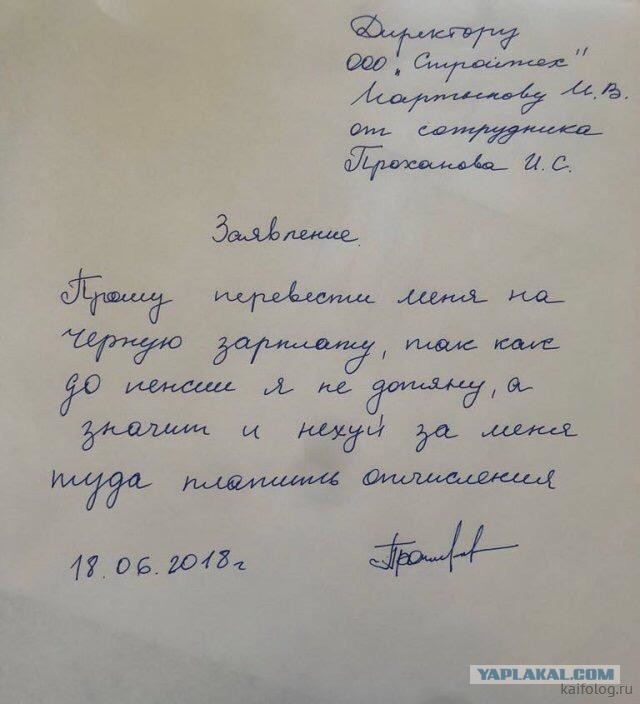 Директору
ООО „Стройтех"
Мартынову И.В.
от сотрудника
Проханова И.С.
Заявление.
Прошу перевести меня на
черную зарплату, так как
до пенсии я не дотяну, а
значит и нехуй за меня
туда платить отчисления
18.06.2018г
YAPLAKAL.COM
kaifolog.ru